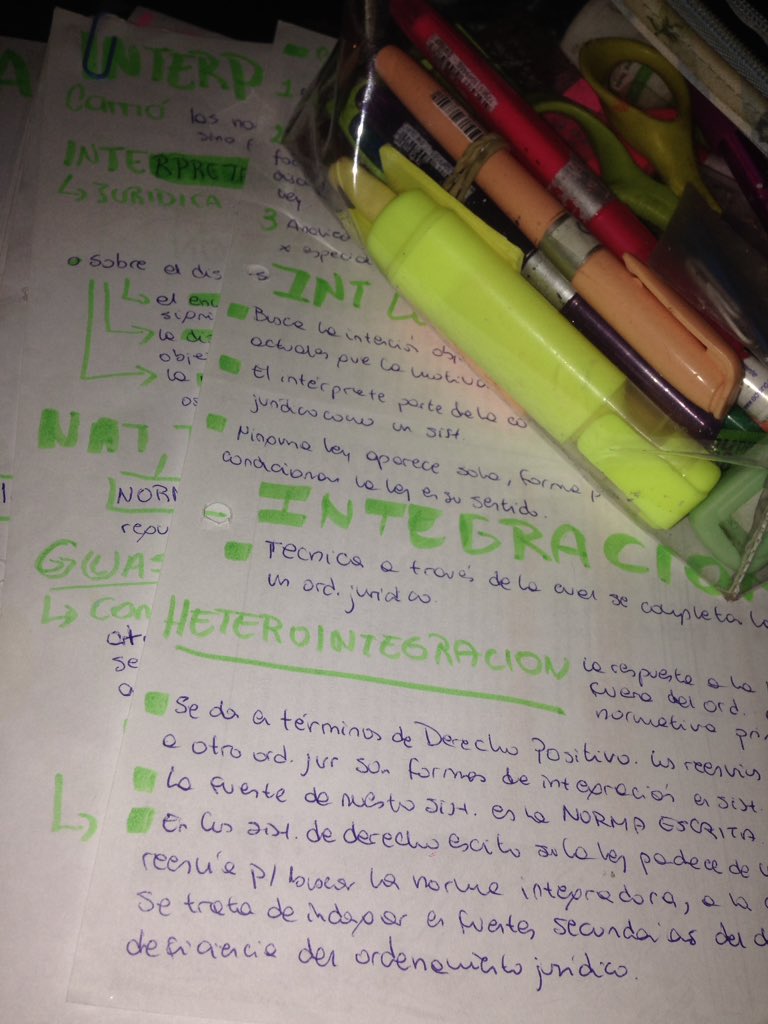 INTERP
Carrió
los no
sino
INTERPRET
↳ JURIDICA
• sobre el dis
↳ el enu
la dis
obje
la
NAT
NORM
repu
GUAS
↳ Con
se
a
1
2
ley
3 Analog
x especia
INT
▪ Busca la intención obj
actuales que la motiva
▪ El intérprete parte de la co
jurídico como un sist.
▪ Ninguna ley aparece sola, forma p
condicionan la ley en su sentido.
INTEGRACION
▪ Técnica a través de la cual se completan la
un ord. jurídico.
HETEROINTEGRACION
la respuesta a la
fuera del ord.
normativa pri
▪ Se da en términos de Derecho Positivo. Los reenvíos
a otro ord. jur son formas de integración en sist.
▪ La fuente de nuestro sist. es la NORMA ESCRITA.
▪ En los sist. de derecho escrito si la ley padece de
reenvía p/ buscar la norma integradora, a la
Se trata de indagar en fuentes secundarias del d
deficiencia del ordenamiento jurídico.